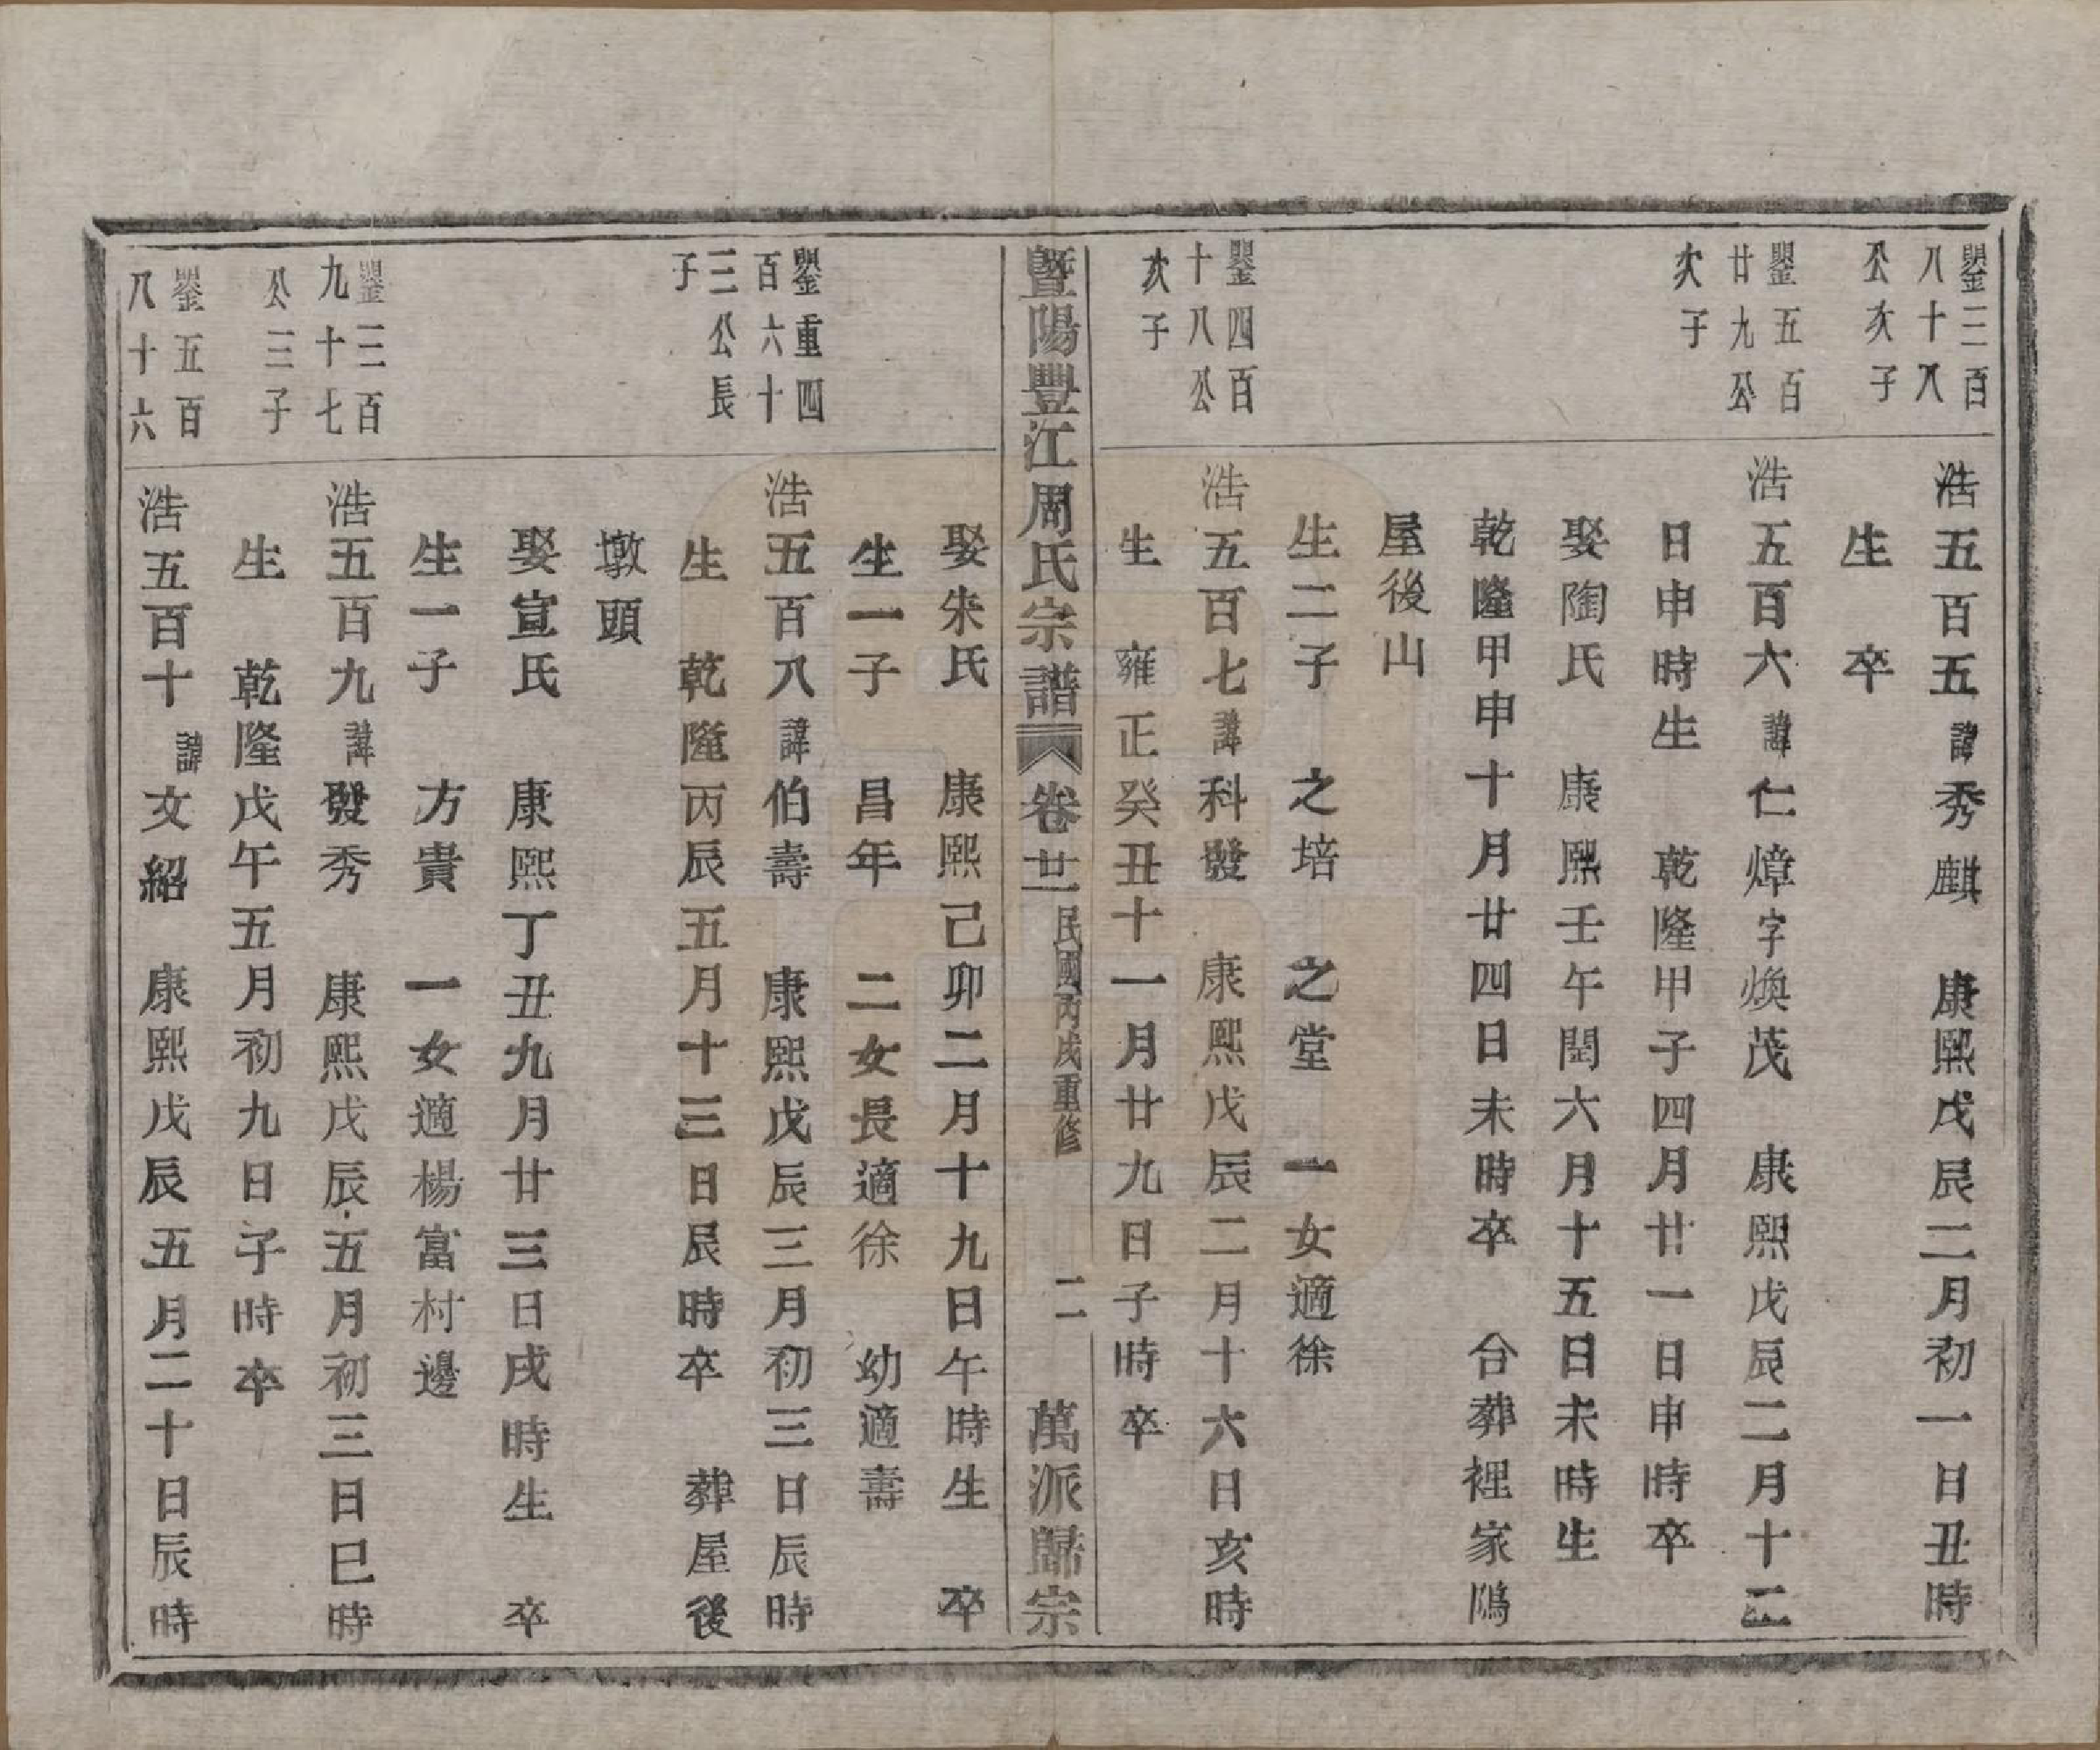 鑍三百
八十八
公次子
浩五百五諱秀麒 康熙戊辰二月初一日丑時
生 卒
鑍五百
廿九公
次子
浩五百六諱仁煒字煥茂 康熙戊辰二月十三
日申時生 乾隆甲子四月廿一日申時卒
娶陶氏 康熙壬午閏六月十五日未時生
乾隆甲申十月廿四日未時卒 合葬裡家隝
屋後山
生二子 之培 之堂 一女適徐
鑍四百
十八公
次子
浩五百七諱科發 康熙戊辰二月十六日亥時
生 雍正癸丑十一月廿九日子時卒
暨陽豐江周氏宗譜 卷廿一 民國丙戌重修 二 萬派歸宗
娶朱氏 康熙己卯二月十九日午時生 卒
生一子 昌年 二女長適徐 幼適壽
鑍重四
百六十
三公長
子
浩五百八諱伯壽 康熙戊辰三月初三日辰時
生 乾隆丙辰五月十三日辰時卒 葬屋後
墩頭
娶宣氏 康熙丁丑九月廿三日戌時生 卒
生一子 方貴 一女適楊富村邊
鑍三百
九十七
公三子
浩五百九諱發秀 康熙戊辰五月初三日巳時
生 乾隆戊午五月初九日子時卒
鑍五百
八十六
浩五百十諱文紹 康熙戊辰五月二十日辰時